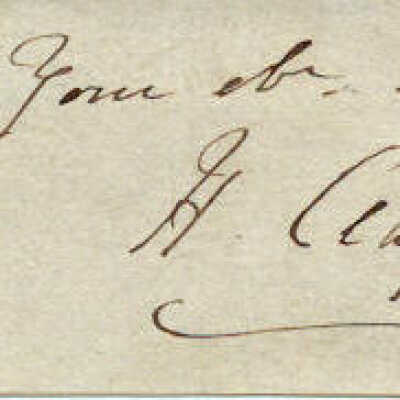 Your obt.
H. Cla